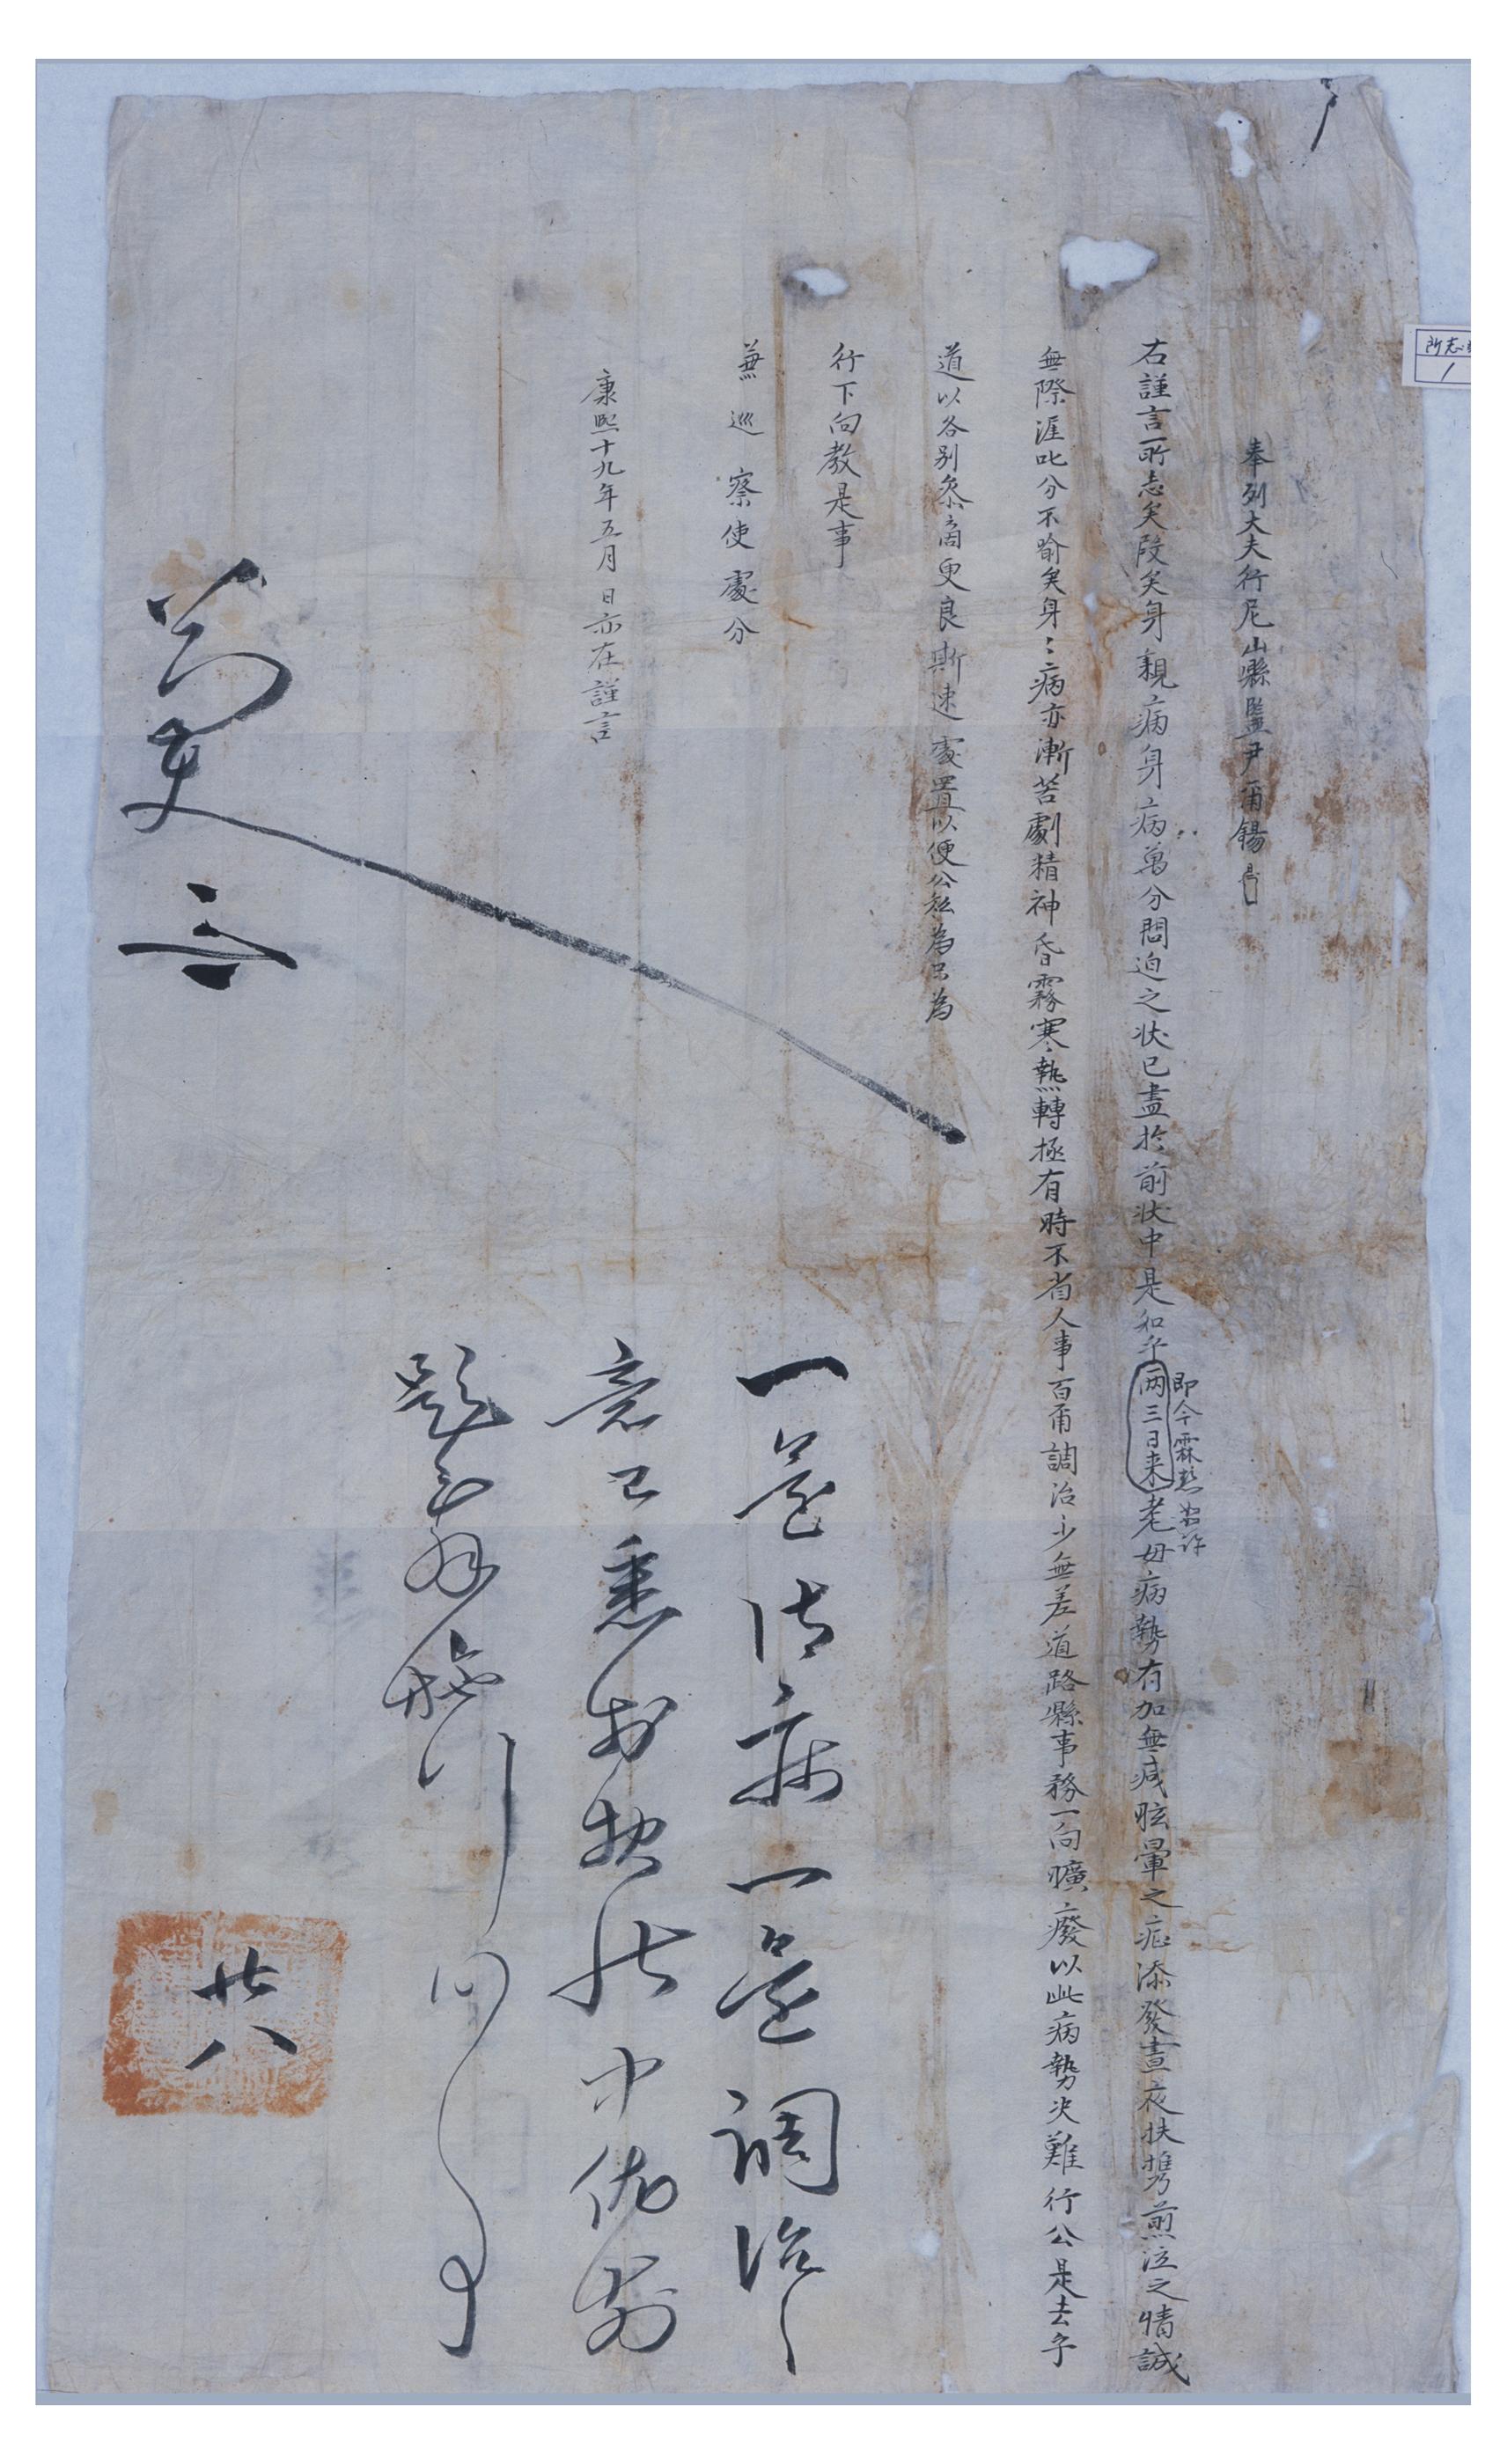 奉列大夫行尼山縣監尹爾錫
右謹言所志矣段矣身親病身病萬分悶迫之狀已盡於前狀中是如乎兩三日来老母病勢有加無减眩暈之症添發晝夜扶携煎泣之情誠
即今霖熱如許
無際涯叱分不喻矣身〻病亦漸苦劇精神昏霧寒熱轉極有時不省人事百爾調治少無差道路縣事務一向曠廢以此病勢决難行公是去乎
道以各別叅商更良斯速處置以便公私為只為
行下向教是事
兼巡察使處分
康熙十九年五月 日亦在謹言
一邊侍病一邊調治
意已悉於
題
廿八
所志
1